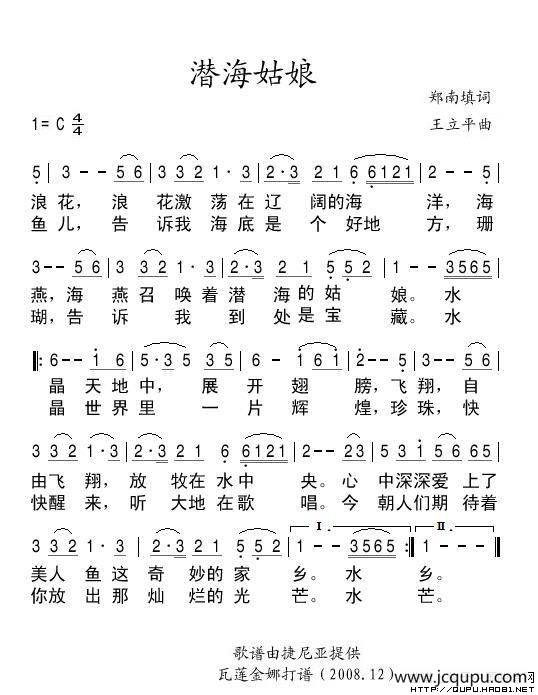 潜海姑娘
郑南填词
1=C 4/4
王立平曲
5 | 3 - - 5 6 | 3 3 2 1 · 3 | 2 · 3 2 1 6 6121 | 2 - - 5 |
浪花，浪 花激 荡在辽 阔的海 洋，海
鱼儿，告 诉我 海底是 个 好地 方，珊
3 - - 5 6 | 3 3 2 1 · 3 | 2 · 3 2 1 5 5 2 | 1 - - 3565 |
燕，海 燕召 唤着 潜 海的姑 娘。水
瑚，告 诉 我 到 处是宝 藏。水
‖: 6 - - 1 6 | 5 · 3 5 3 5 | 6 - 1 6 1 | 2 - - 5 |
晶 天地中，展 开 翅 膀，飞翔，自
晶 世界里 一 片 辉 煌，珍珠，快
3 3 2 1 · 3 | 2 · 3 2 1 6 6121 | 2 - - 3 2 | 5 3 1 5 6 6 5 |
由飞 翔，放 牧在水中 央。心 中深深爱 上了
快醒 来，听 大地在歌 唱。今 朝人们期 待着
3 3 2 1 · 3 | 2 · 3 2 1 5 5 2 | I. 1 - - 3565 :‖ II. 1 - - ‖
美人 鱼这 奇 妙的家 乡。水 乡。
你放 出那 灿 烂的光 芒。水 芒。
歌谱由捷尼亚提供
瓦莲金娜打谱（2008.12）
www.jcqupu.com
HTTP://QUPU.HAO81.NET